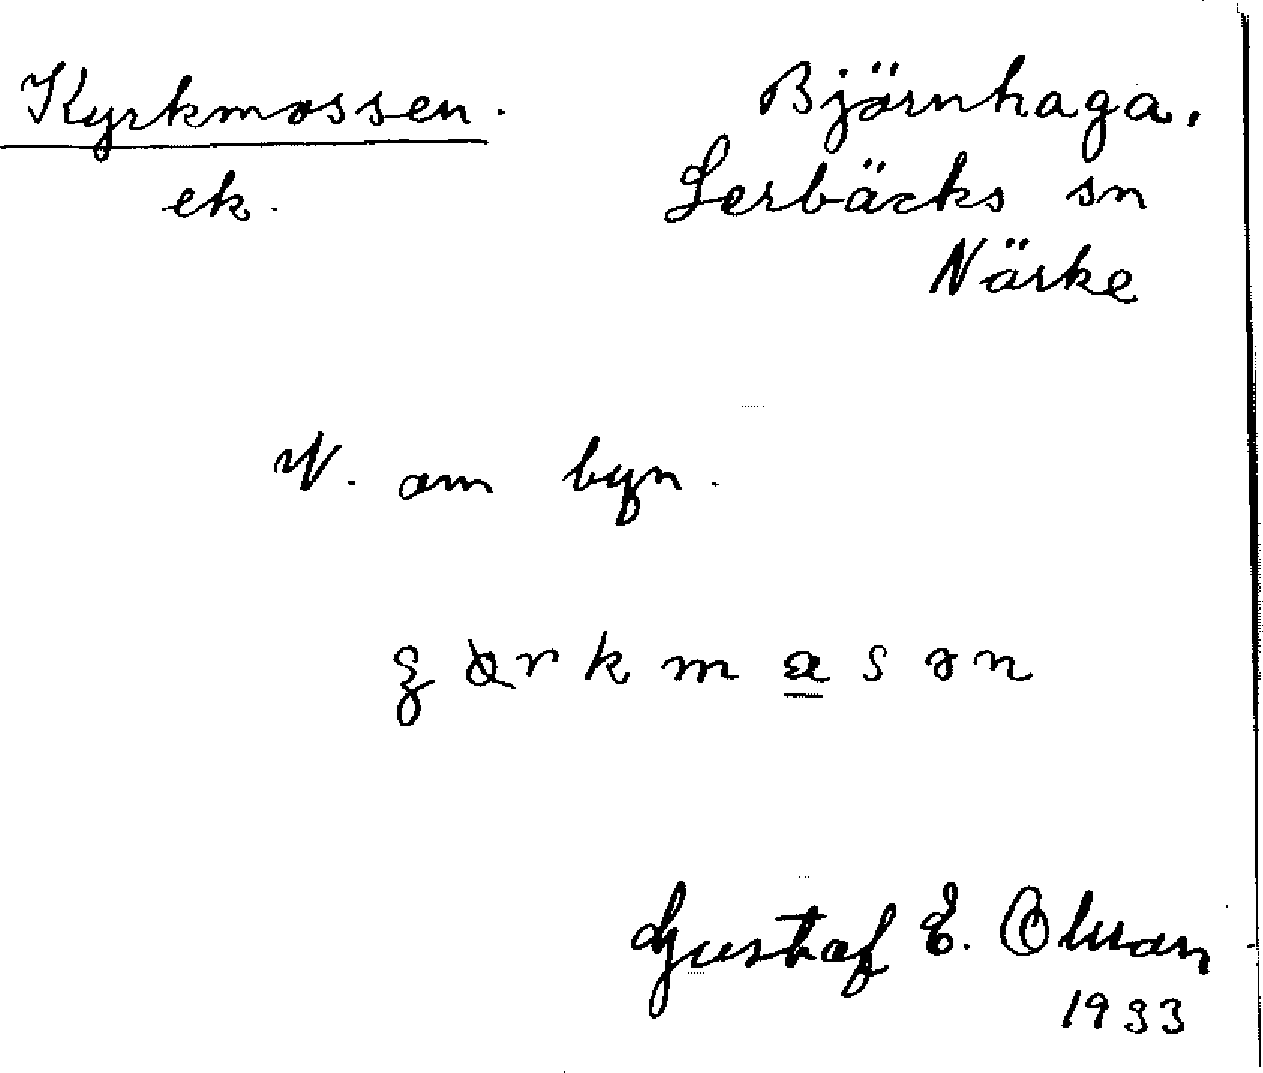 Kyrkmossen. Björnhaga.
ek. Lerbäcks sn
Närke
V. om byn.
Gustaf E. Olsson
1933